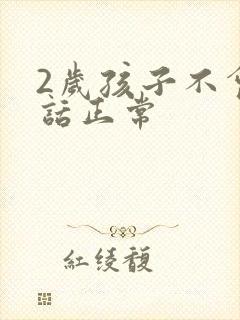 2歲孩子不
話正常
紅绫馥